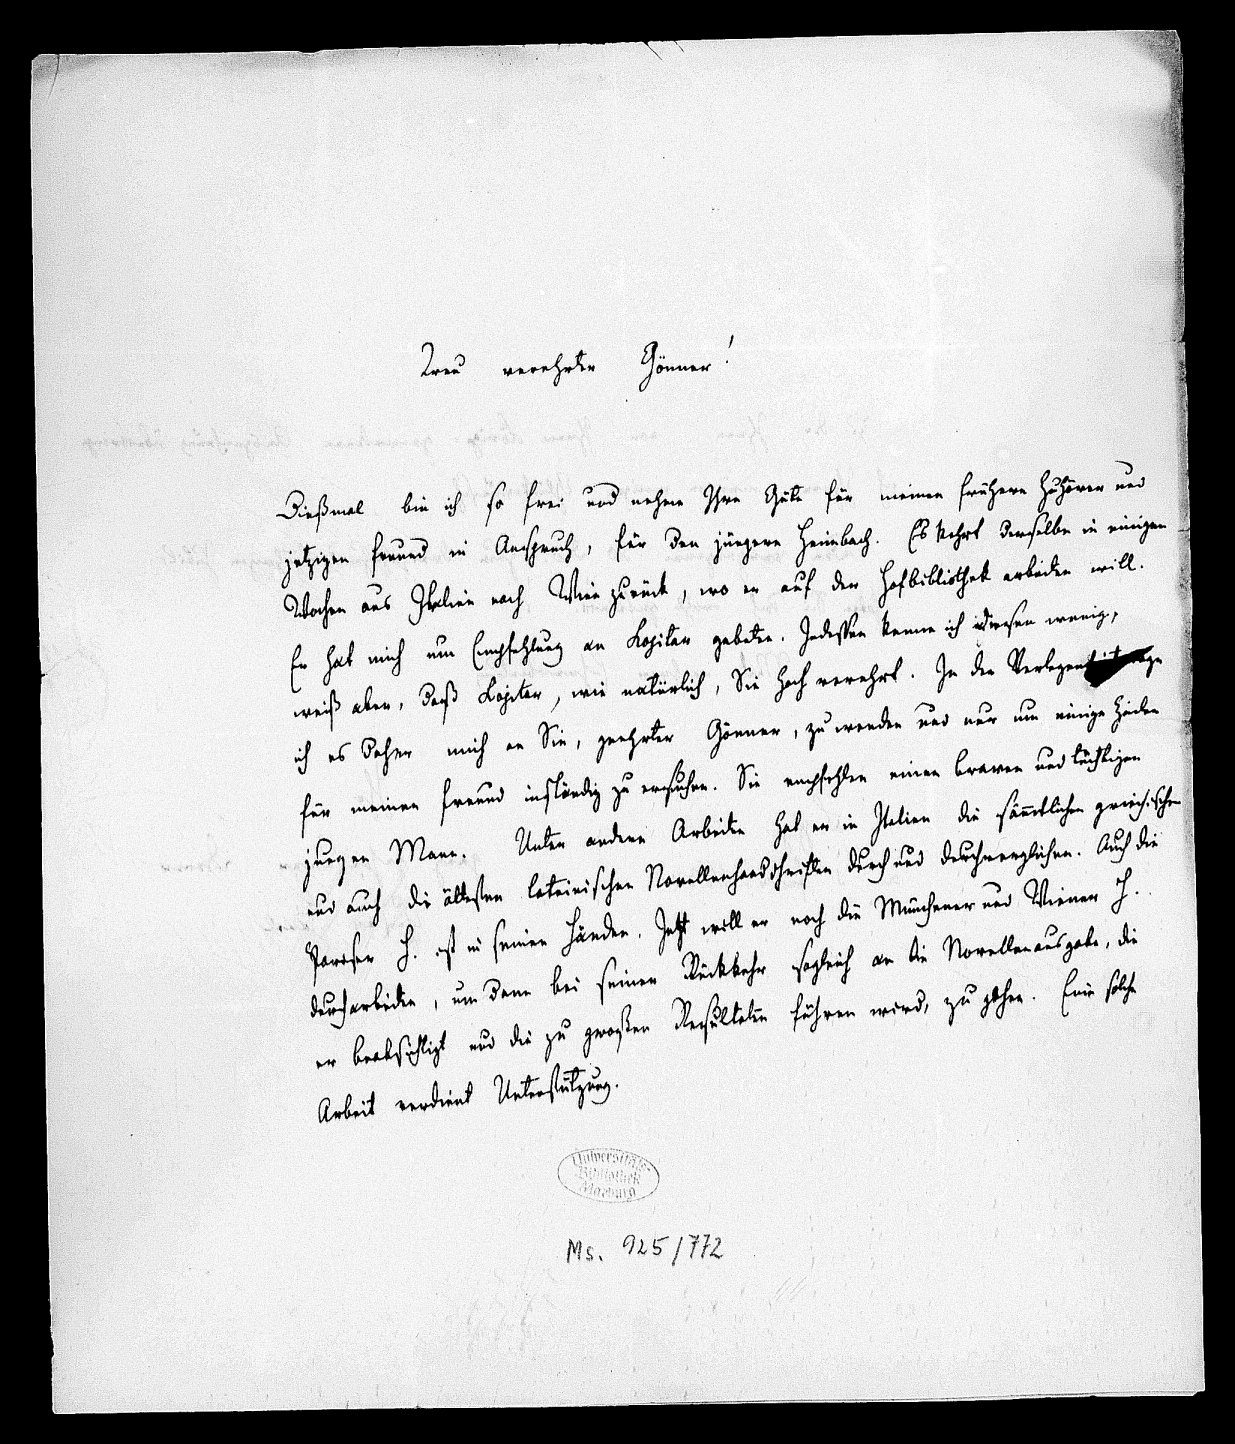 Treu verehrter Gönner!
Dießmal bin ich so frei und nehme Ihre Güte für meinen frühern Zuhörer und
jetzigen Freund in Anspruch, für den jüngern Heimbach. Es kehrt derselbe in einigen
Wochen aus Italien nach Wien zurück, wo er auf der Hofbibliothek arbeiten will.
Er hat mich um Empfehlung an Kopitar gebeten. Indessen kenne ich diesen wenig,
weiß aber, daß Kopitar, wie natürlich, Sie hoch verehrt. In der Verlegenheit wage
ich es daher mich an Sie, geehrter Gönner, zu wenden und nur um einige Zeilen
für meinen Freund inständig zu ersuchen. Sie empfehlen einen braven und tüchtigen
jungen Mann. Unter andern Arbeiten hat er in Italien die sämmtlichen griechischen
und auch die ältesten lateinischen Novellenhandschriften durch und durchverglichen. Auch die
Pariser H. ist in seinen Händen. Jetzt will er noch die Münchener und Wiener H.
durcharbeiten, um dann bei seiner Rückkehr sogleich an die Novellenausgabe, die
er beabsichtigt und die zu großen Resultaten führen wird, zu gehen. Eine solche
Arbeit verdient Unterstützung.
Universitäts-
Bibliothek
Marburg
Ms. 925/772